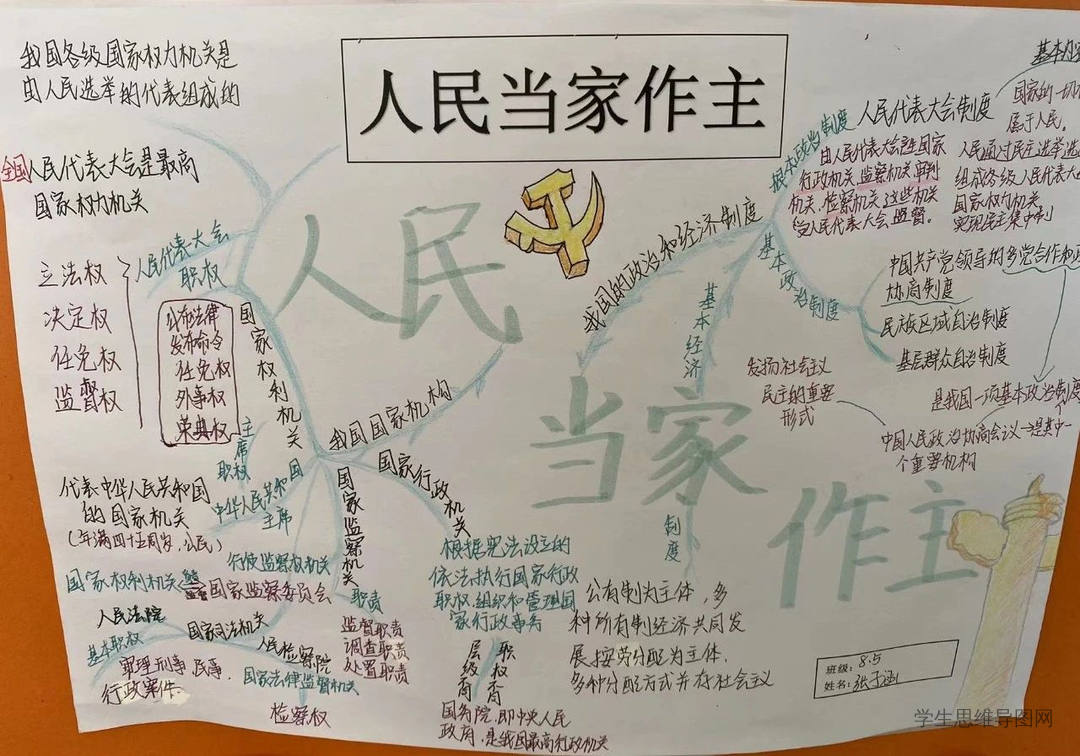 人民当家作主
我国各级国家权力机关是
由人民选举的代表组成的
全国人民代表大会是最高
国家权力机关
人民代表大会
职权
立法权
决定权
任免权
监督权
国家权利机关
公布法律
发布命令
任免权
外事权
荣典权
主席
职权
中华人民共和国
主席
代表中华人民共和国
的国家机关
(年满四十五周岁,公民)
我国国家机构
国家监察机关
行使监察权机关
国家权利机关
国家监察委员会
职责
监督职责
调查职责
处置职责
国家司法机关
人民法院
基本职权
审理刑事、民事、
行政案件
人民检察院
国家法律监督机关
检察权
国家行政机关
根据宪法设立的
依法执行国家行政
职权,组织和管理国
家行政事务
职权
层级
国务院,即中央人民
政府,是我国最高行政机关
我国的政治和经济制度
根本政治制度
人民代表大会制度
基本内
国家的一切
属于人民。
人民通过民主选举选
组成各级人民代表大
国家权力机关
实现民主集中制
由人民代表大会产生国家
行政机关、监察机关、审判
机关、检察机关,这些机关
受人民代表大会监督。
基本政治制度
中国共产党领导的多党合作和政
协商制度
民族区域自治制度
基层群众自治制度
是我国一项基本政治制度
中国人民政治协商会议→是其中一
个重要机构
发扬社会主义
民主的重要
形式
基本经济
制度
公有制为主体,多
种所有制经济共同发
展,按劳分配为主体,
多种分配方式并存社会主义
人民
当家
作主
班级: 8.5
姓名: 张子涵
学生思维导图网